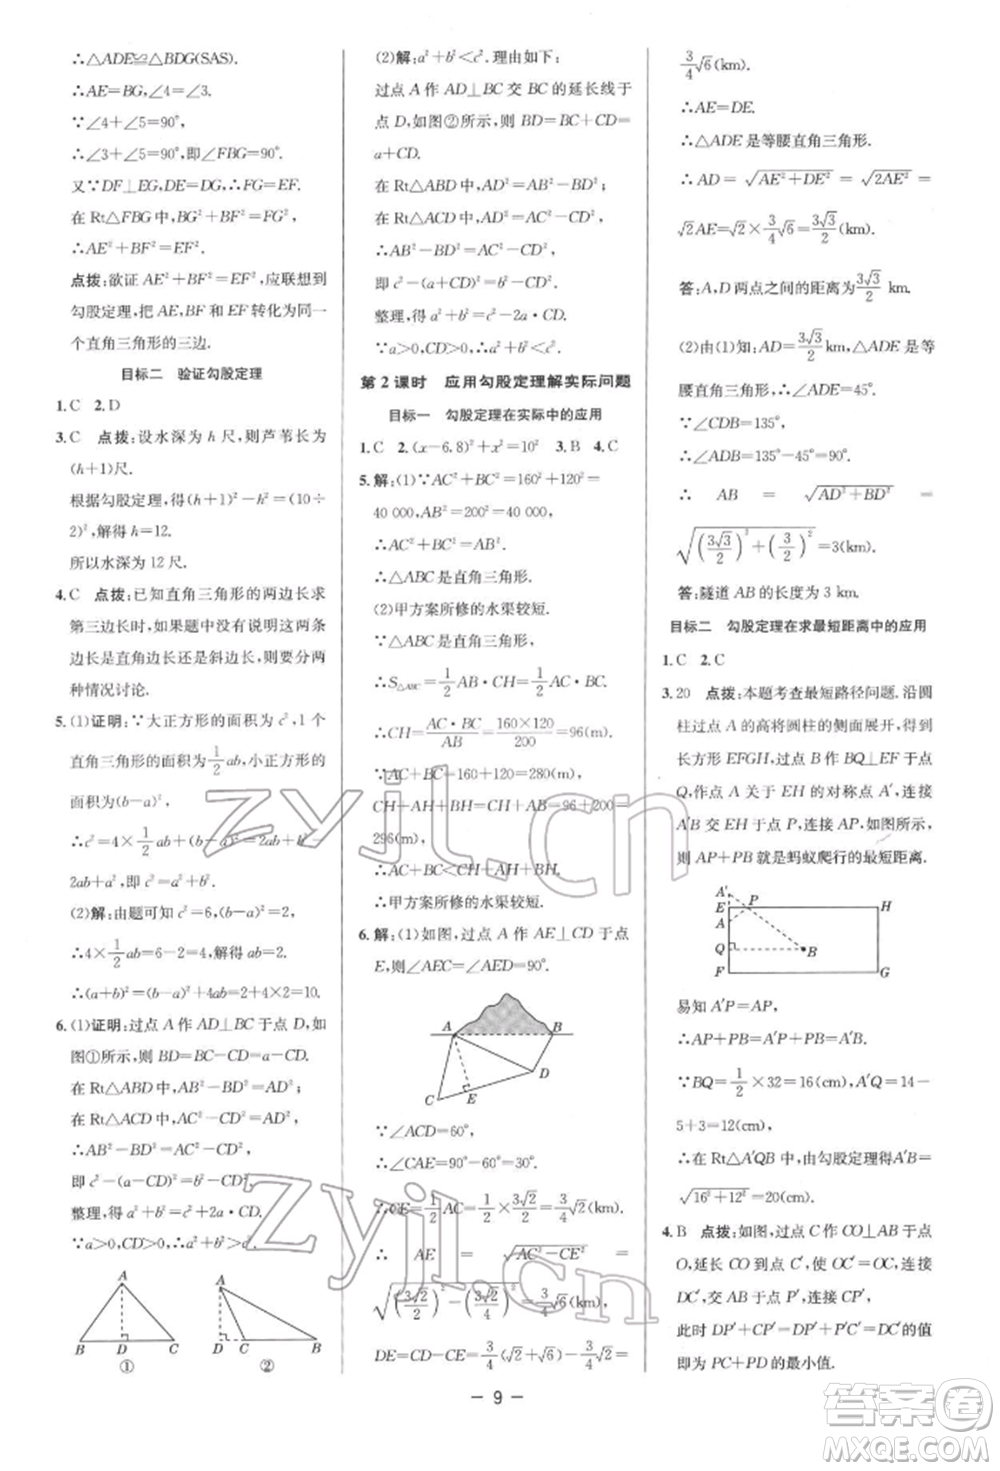 ∴△ADE≌△BDG(SAS).
∴AE=BG,∠4=∠3.
∵∠4+∠5=90°,
∴∠3+∠5=90°,即∠FBG=90°.
又∵DF⊥EG,DE=DG,∴FG=EF.
在 Rt△FBG 中,BG²+BF²=FG²,
∴AE²+BF²=EF².
点拨:欲证 AE²+BF²=EF²,应联想到
勾股定理,把 AE,BF 和 EF 转化为同一
个直角三角形的三边.
目标二 验证勾股定理
1.C 2.D
3.C 点拨:设水深为 h 尺,则芦苇长为
(h+1)尺.
根据勾股定理,得(h+1)²-h²=(10÷
2)²,解得 h=12.
所以水深为 12 尺.
4.C 点拨:已知直角三角形的两边长求
第三边长时,如果题中没有说明这两条
边长是直角边长还是斜边长,则需要分两
种情况讨论.
5.(1)证明:∵大正方形的面积为 c²,1 个
直角三角形的面积为 1/2 ab,小正方形的
面积为(b-a)²,
∴c²=4×1/2 ab+(b-a)²=2ab+b²-
2ab+a²,即 c²=a²+b².
(2)解:由题可知 c²=6,(b-a)²=2,
∴4×1/2 ab=6-2=4,解得 ab=2.
∴(a+b)²=(b-a)²+4ab=2+4×2=10.
6.(1)证明:过点 A 作 AD⊥BC 于点 D,如
图①所示,则 BD=BC-CD=a-CD.
在 Rt△ABD 中,AD²=AB²-BD²;
在 Rt△ACD 中,AD²=AC²-CD²,
∴AB²-BD²=AC²-CD²,
即 c²-(a-CD)²=b²-CD².
整理,得 a²+b²=c²+2a·CD.
∵a>0,CD>0,∴a²+b²>c².
A
B D C
①
A
D C B
②
(2)解:a²+b²<c². 理由如下:
过点 A 作 AD⊥BC 交 BC 的延长线于
点 D,如图②所示,则 BD=BC+CD=
a+CD.
在 Rt△ABD 中,AD²=AB²-BD²;
在 Rt△ACD 中,AD²=AC²-CD²,
∴AB²-BD²=AC²-CD²,
即 c²-(a+CD)²=b²-CD².
整理,得 a²+b²=c²-2a·CD.
∵a>0,CD>0,∴a²+b²<c².
第 2 课时 应用勾股定理解实际问题
目标一 勾股定理在实际中的应用
1.C 2.(x-6.8)²+x²=10² 3.B 4.C
5.解:(1)∵AC²+BC²=160²+120²=
40 000,AB²=200²=40 000,
∴AC²+BC²=AB².
∴△ABC 是直角三角形.
(2)甲方案所修的水渠较短.
∵△ABC 是直角三角形,
∴S△ABC=1/2 AB·CH=1/2 AC·BC.
∴CH=AC·BC/AB=160×120/200=96(m).
∵AC+BC=160+120=280(m),
CH+AH+BH=CH+AB=96+200=
296(m),
∴AC+BC<CH+AH+BH.
∴甲方案所修的水渠较短.
6.解:(1)如图,过点 A 作 AE⊥CD 于点
E,则∠AEC=∠AED=90°.
A B
C E D
∵∠ACD=60°,
∴∠CAE=90°-60°=30°.
∴CE=1/2 AC=1/2×3√2/2=3/4√2(km).
∴ AE = √(AC²-CE²) =
√((3√2/2)²-(3√2/4)²)=3/4√6(km),
DE=CD-CE=3/4(√2+√6)-3/4√2=
3/4√6(km)
∴AE=DE.
∴△ADE 是等腰直角三角形.
∴AD=√(AE²+DE²)=√(2AE²)=
√2AE=√2×3/4√6=3√3/2(km).
答:A,D 两点之间的距离为3√3/2 km.
(2)由(1)知:AD=3√3/2 km,△ADE 是等
腰直角三角形,
∴∠ADE=45°.
∵∠CDB=135°,
∴∠ADB=135°-45°=90°.
∴ AB = √(AD²+BD²) =
√((3√3/2)²+(3/2)²)=3(km).
答:隧道 AB 的长度为 3 km.
目标二 勾股定理在求最短距离中的应用
1.C 2.C
3.20 点拨:本题考查最短路径问题. 沿圆
柱过点 A 的高将圆柱的侧面展开,得到
长方形 EFGH,过点 B 作 BQ⊥EF 于点
Q,作点 A 关于 EH 的对称点 A′,连接
A′B 交 EH 于点 P,连接 AP,如图所示,
则 AP+PB 就是蚂蚁爬行的最短距离.
A′
E P H
A
Q B
F G
易知 A′P=AP,
∴AP+PB=A′P+PB=A′B.
∵BQ=1/2×32=16(cm),A′Q=14-
5+3=12(cm),
∴在 Rt△A′QB 中,由勾股定理得A′B=
√(16²+12²)=20(cm).
4.B 点拨:如图,过点 C 作 CO⊥AB 于点
O,延长 CO 到点 C′,使 OC′=OC,连接
DC′,交 AB 于点 P′,连接 CP′,
此时 DP′+CP′=DP′+P′C′=DC′的值
即为 PC+PD 的最小值.
— 9 —
zyjl.cn
zyjl.cn
答案圈
MXQE.COM